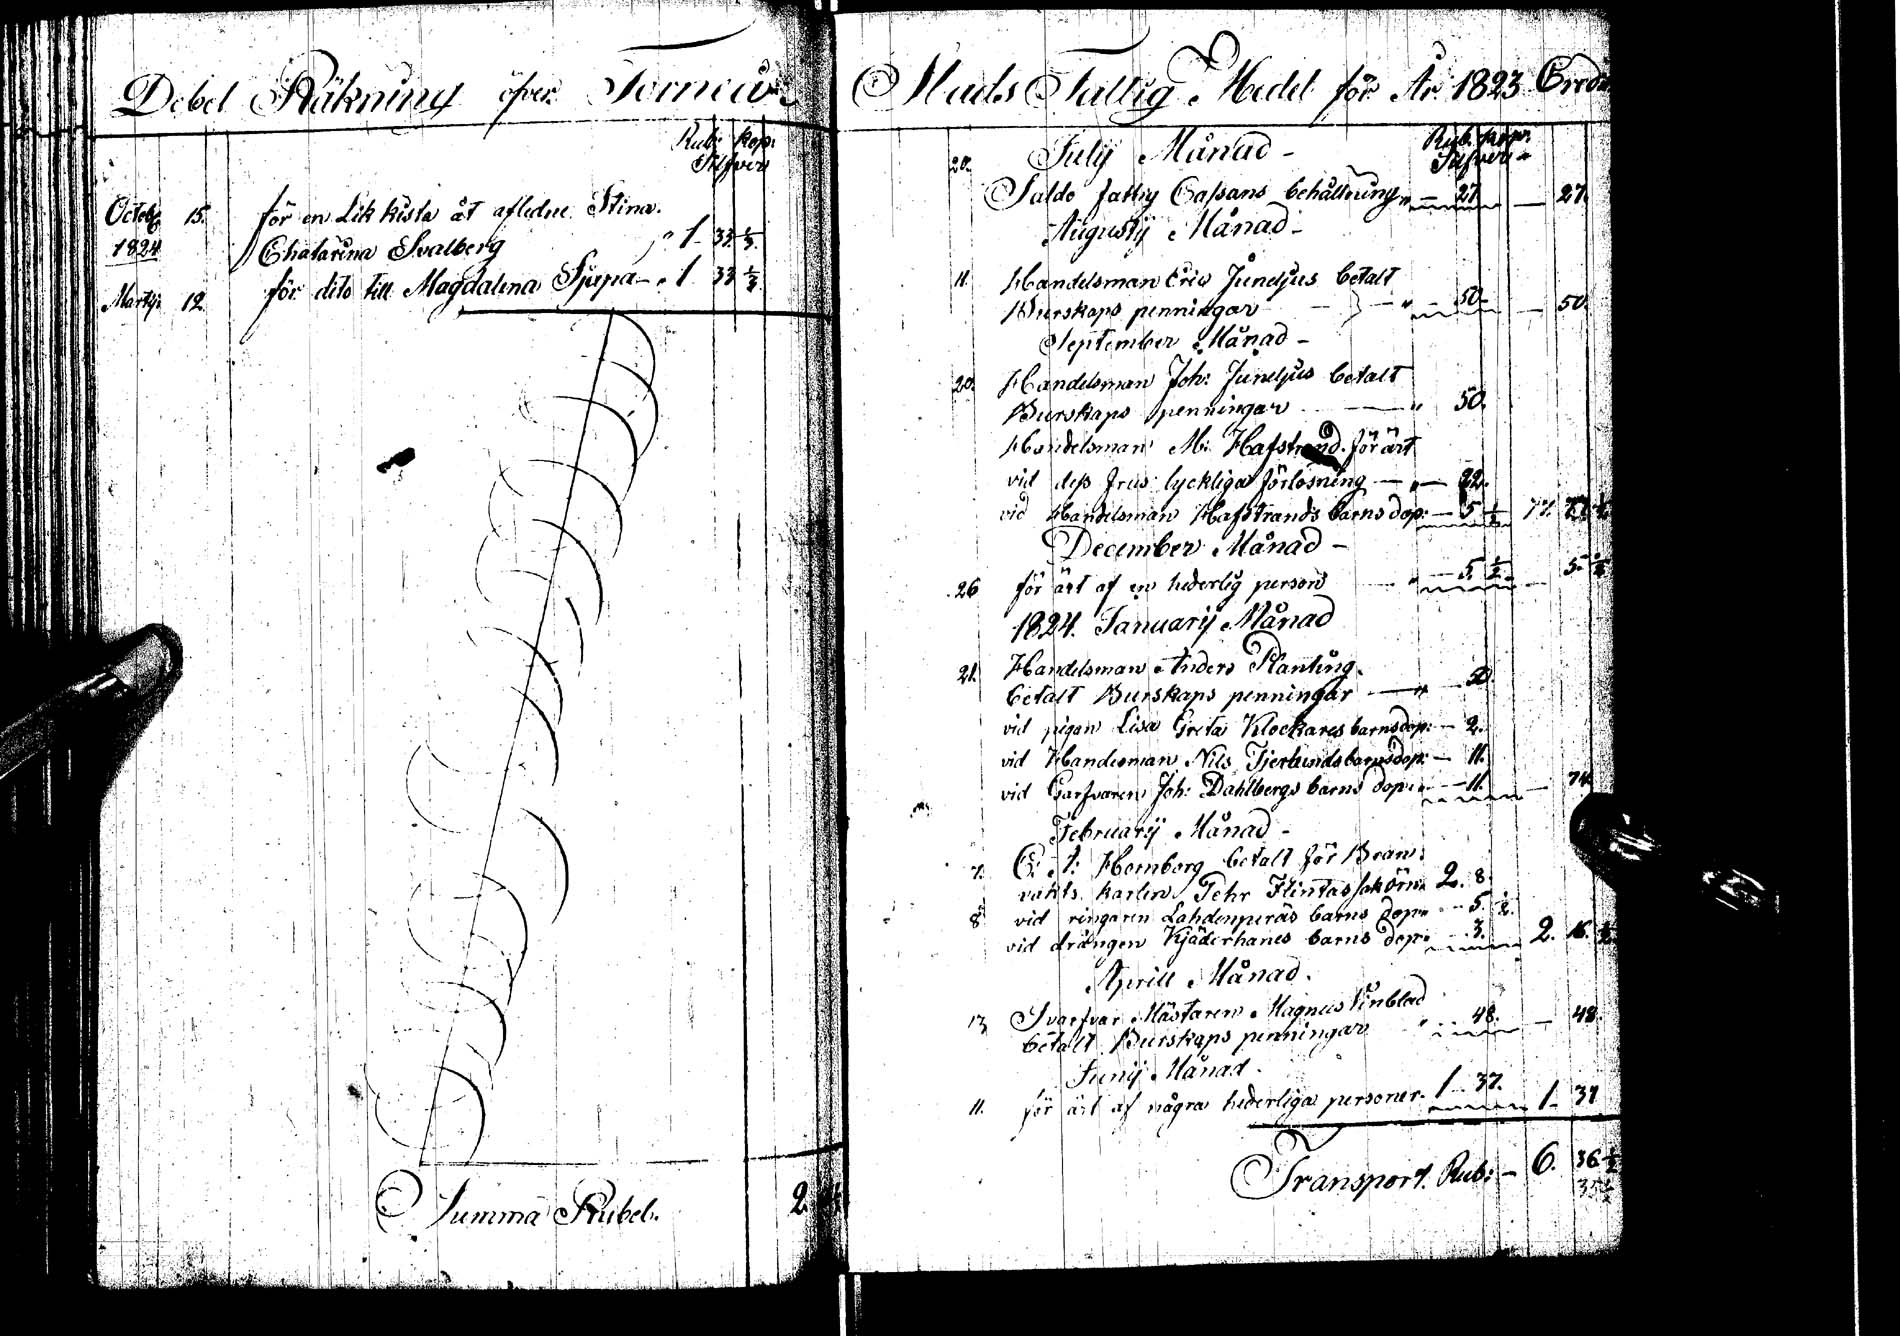 Debet Räkning öfver Torneå
Rub: kop:
Silfver
Octob: 15. för en Lik kista åt afledne Stina
1824 Chatarina Svalberg " 1 33 1/3
Martij 12 för dito till Magdalena " 1 33 1/3
Summa Rubel. 2.
Stads Fattig Medel för År 1823 Credit
20. Julij Månad - Rub. kop:
Silfver
Saldo fattig Cassans behållning " 27 27.
Augustij Månad -
11. Handelsman Eric Junelius betalt
Burskaps penningar " 50 50.
September Månad -
20. Handelsman Joh: Junelius betalt
Burskaps penningar " 50.
Handelsman M: Hafstrand för ärt
vid dess frus lyckliga förlosning " 22.
vid Handelsman Hafstrands barns dop: 5 1/2 77 1/2
December Månad -
26 för ärt af en hederlig person " 5 1/2 5 1/2
1824. Januarij Månad
21. Handelsman Anders Planting
betalt Burskaps penningar " 50
vid pigan Lisa Greta Klockares barnsdop: 2.
vid Handesman Nils barnsdop: 11.
vid Garfvaren Joh: Dahlbergs barns dop: 11. 74.
Februarij Månad -
7. C: A: Hornborg betalt för Bran:
vakts karlen Pehr Flintas 2. 8.
8 vid ringaren Lahdenperäs barns dop: 5. 1/2
vid drängen barns dop: 3. 2. 16. 1/2
Aprill Månad.
13 Svarfvar Mästaren Magnus Vinblad
betalt Burskaps penningar " 48. 48.
Junij Månad -
11. för ärt af några hederliga personer. 1 37. 1 37
Transport. Rub: - 6. 36 1/2
35 1/2